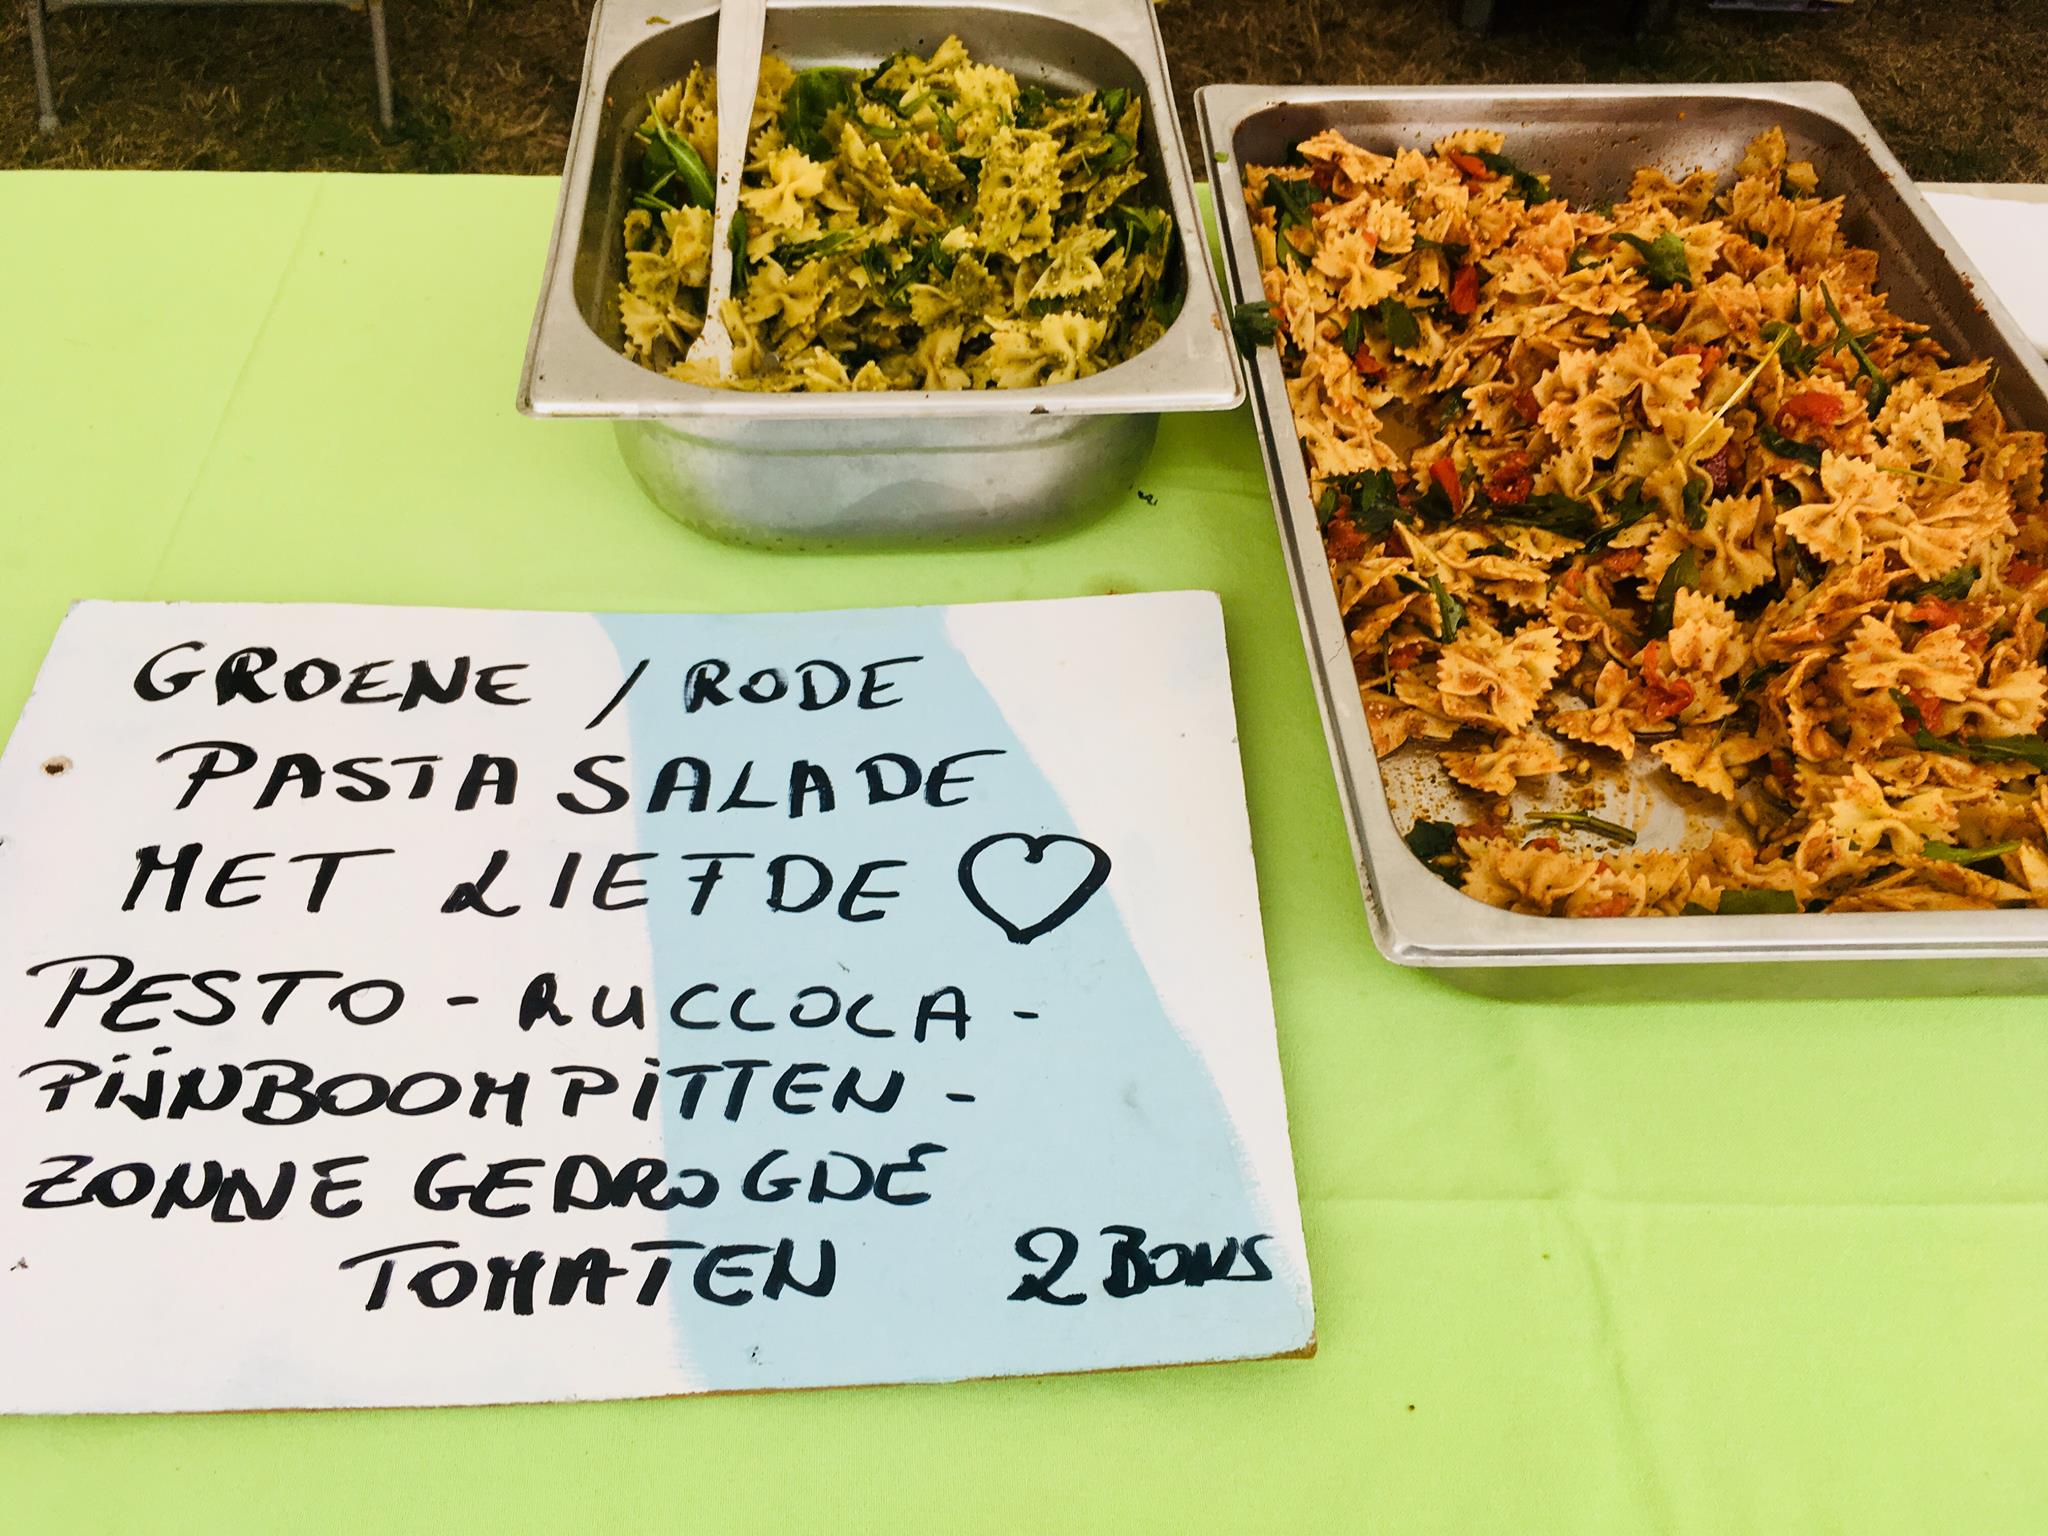 GROENE / RODE
PASTA SALADE
MET LIEFDE ♡
PESTO - RUCCOLA -
PIJNBOOMPITTEN -
ZONNE GEDROGDE
TOMATEN 2 BONS